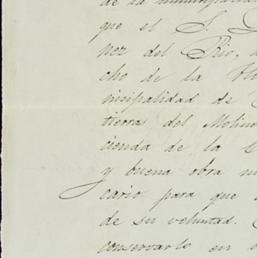 de la municipalidad
que el S. D
nez del Rio,
cho de la
nicipalidad de
tierras del Molino
cienda de la
y buena obra
cario para que
de su voluntad.
conservarlo en